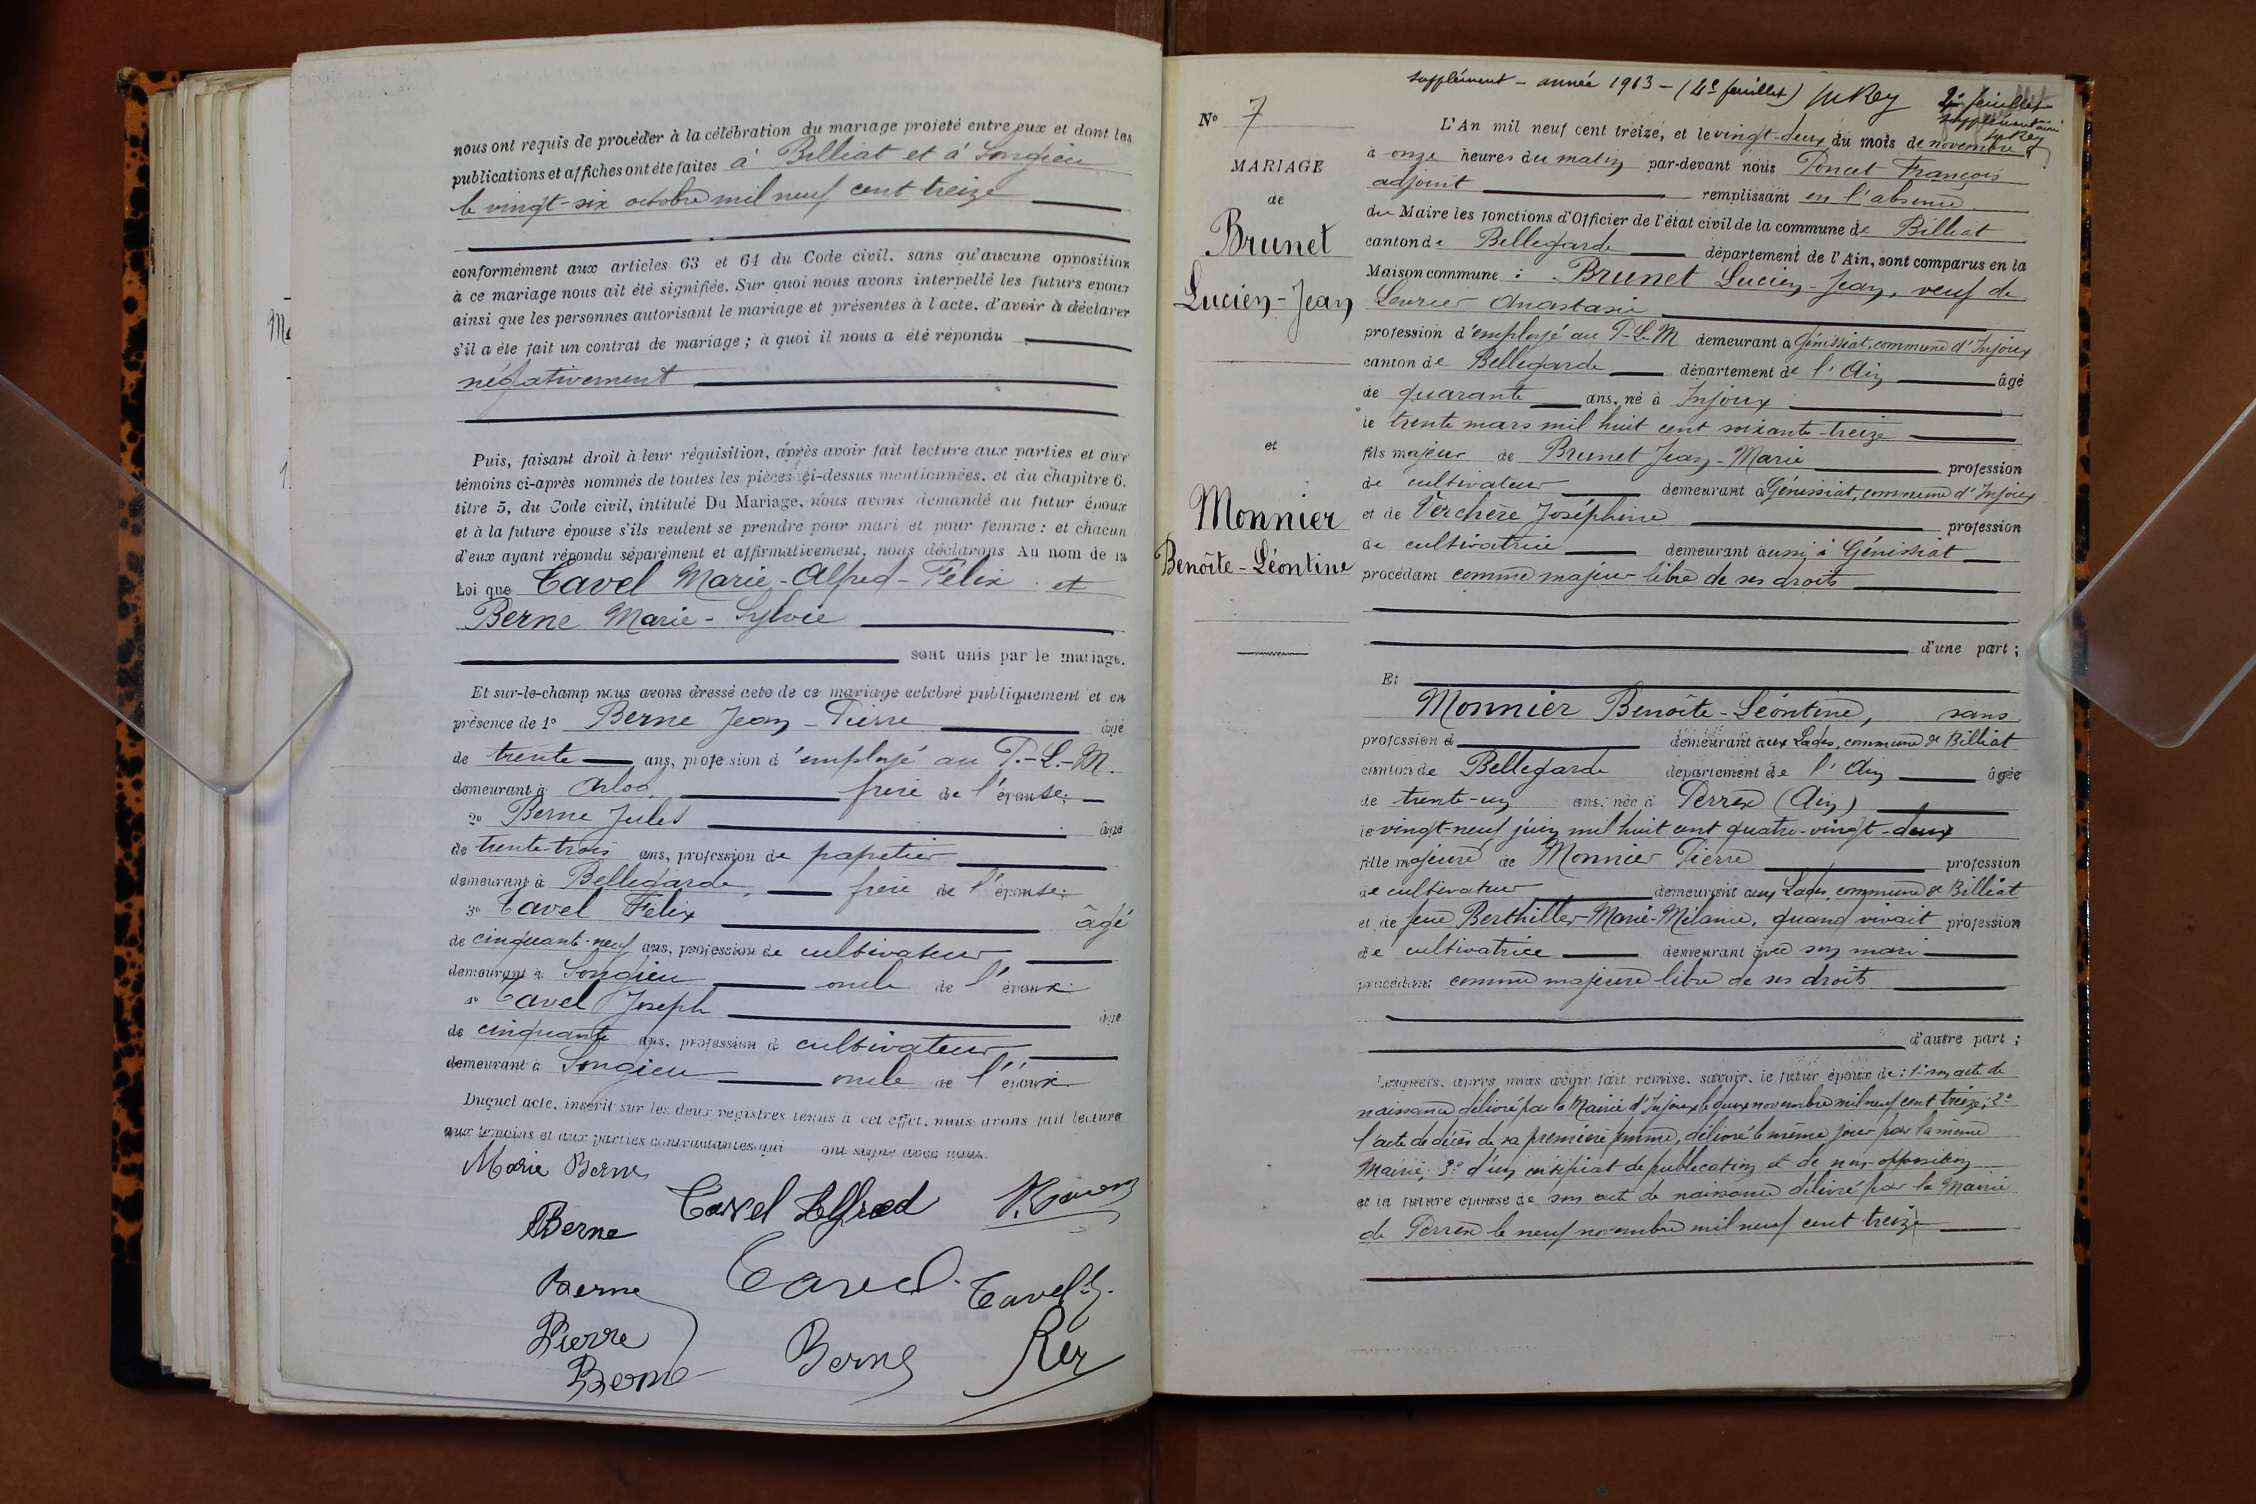 nous ont requis de procéder à la célébration du mariage projeté entre eux et dont les
publications et affiches ont été faites à Billiat et à Songieu
le vingt-six octobre mil neuf cent treize
conformément aux articles 63 et 64 du Code civil, sans qu'aucune opposition
à ce mariage nous ait été signifiée. Sur quoi nous avons interpellé les futurs époux
ainsi que les personnes autorisant le mariage et présentes à l'acte, d'avoir à déclarer
s'il a été fait un contrat de mariage ; à quoi il nous a été répondu
négativement
Puis, faisant droit à leur réquisition, après avoir fait lecture aux parties et aux
témoins ci-après nommés de toutes les pièces ci-dessus mentionnées, et du chapitre 6,
titre 5, du Code civil, intitulé Du Mariage, nous avons demandé au futur époux
et à la future épouse s'ils veulent se prendre pour mari et pour femme : et chacun
d'eux ayant répondu séparément et affirmativement, nous déclarons Au nom de la
Loi que Tavel Marie-Alfred-Félix et
Berne Marie-Sylvie
sont unis par le mariage.
Et sur-le-champ nous avons dressé acte de ce mariage célébré publiquement et en
présence de 1° Berne Jean-Pierre âgé
de trente ans, profession d'employé au P.-L.-M.
demeurant à Arloo, frère de l'épouse;
2° Berne Jules âgé
de trente-trois ans, profession de papetier
demeurant à Bellegarde, frère de l'épouse;
3° Tavel Félix âgé
de cinquante-neuf ans, profession de cultivateur
demeurant à Songieu oncle de l'époux
4° Tavel Joseph âgé
de cinquante ans, profession de cultivateur
demeurant à Songieu oncle de l'époux
Duquel acte, inscrit sur les deux registres tenus à cet effet, nous avons fait lecture
aux témoins et aux parties contractantes qui ont signé avec nous.
Marie Berne
Tavel Alfred
Berne
Berne
Tavel
Tavel J.
Pierre
Berne
Berne
Rey
supplément - année 1913 - (2e feuillet) JMRey
2e feuillet
supplémentaire
JMRey
N° 7
MARIAGE
de
Brunet
Lucien-Jean
et
Monnier
Benoîte-Léontine
L'An mil neuf cent treize, et le vingt-deux du mois de novembre
à onze heures du matin par-devant nous Poncet François
adjoint remplissant en l'absence
du Maire les fonctions d'Officier de l'état civil de la commune de Billiat
canton de Bellegarde département de l'Ain, sont comparus en la
Maison commune : Brunet Lucien-Jean, veuf de
Levrier Anastasie
profession d'employé au P-L-M demeurant à Génissiat, commune d'Injoux
canton de Bellegarde département de l'Ain âgé
de quarante ans, né à Injoux
le trente mars mil huit cent soixante-treize
fils majeur de Brunet Jean-Marie profession
de cultivateur demeurant à Génissiat, commune d'Injoux
et de Verchère Joséphine profession
de cultivatrice demeurant aussi à Génissiat
procédant comme majeur libre de ses droits
d'une part ;
Et
Monnier Benoîte-Léontine, sans
profession d demeurant aux Lades, commune de Billiat
canton de Bellegarde département de l'Ain âgée
de trente-un ans, née à Perrex (Ain)
le vingt-neuf juin mil huit cent quatre-vingt-deux
fille majeure de Monnier Pierre profession
de cultivateur demeurant aux Lades, commune de Billiat
et de feue Berthillet Marie-Mélanie, quand vivait profession
de cultivatrice demeurant avec son mari
procédant comme majeure libre de ses droits
d'autre part ;
Lesquels, après nous avoir fait remise, savoir, le futur époux de : 1° son acte de
naissance délivré par la Mairie d'Injoux le deux novembre mil neuf cent treize ; 2°
l'acte de décès de sa première femme, délivré le même jour par la même
Mairie, 3° d'un certificat de publication et de non-opposition
et la future épouse de son acte de naissance délivré par la Mairie
de Perrex le neuf novembre mil neuf cent treize